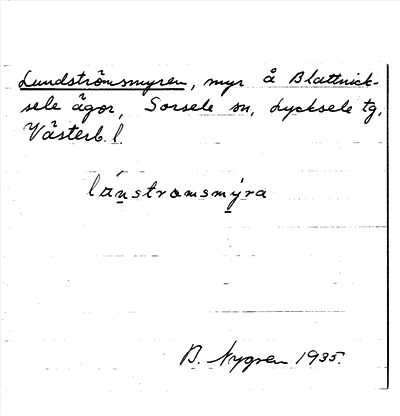 Lundströmsmyren, myr å Blattnick-
sele ägor, Sorsele sn, Lycksele tg,
Västerb. l.
lánstromsmýra
B. Nygren 1935.